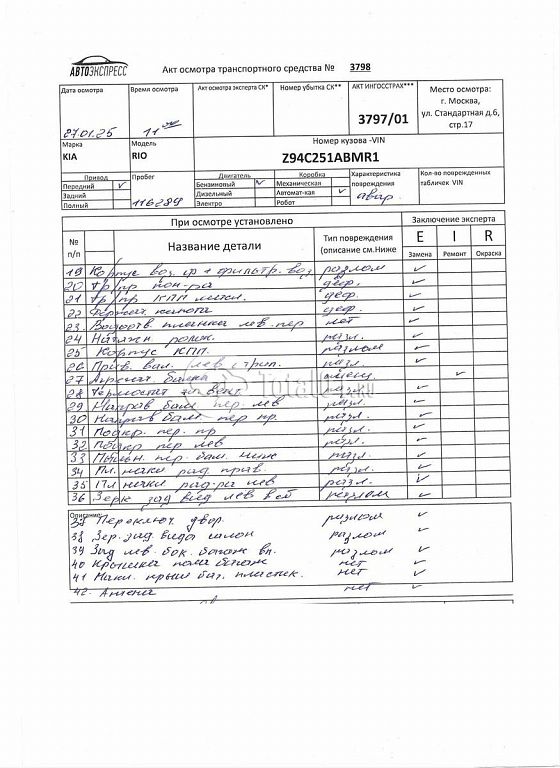 АВТОЭКСПРЕСС
Акт осмотра транспортного средства № 3798
Дата осмотра Время осмотра Акт осмотра эксперта СК* Номер убытка СК** АКТ ИНГОССТРАХ*** Место осмотра:
г. Москва,
ул. Стандартная д.6,
стр.17
27.01.25 11 3797/01
Марка Модель Номер кузова -VIN
KIA RIO Z94C251ABMR1
Привод Пробег Двигатель Коробка Характеристика повреждения Кол-во поврежденных табличек VIN
Передний ✓ Бензиновый ✓ Механическая
Задний Дизельный Автомат-кая ✓
Полный Электро Робот
116289 авар.
При осмотре установлено Заключение эксперта
№ п/п Название детали Тип повреждения (описание см.Ниже E I R
Замена Ремонт Окраска
19 Корпус воз. ф + фильтр. воз разлом ✓
20 Тр/пр кон-ра деф. ✓
21 Тр/пр КПП деф. ✓
22 капота деф. ✓
23 планка лев. пер нет ✓
24 Натяжн ролик. разл. ✓
25 Корпус КПП. разлом ✓
26 Прив. вал. лев, разл. ✓
27 балка ✓
28 Термостат разл. ✓
29 Направ бамп пер. лев разл. ✓
30 Направ бамп пер пр. разл. ✓
31 Подкр. пер. пр разл. ✓
32 Подкр пер лев разл. ✓
33 пер. бам. ниж разл. ✓
34 Пл. рад прав. разл. ✓
35 Пл рад-ра лев разл. ✓
36 Зерк зад вид лев в сб разлом ✓
Описание:
37 Переключ. двор. разлом ✓
38 Зер. зад вида салон разлом ✓
39 Зад лев. бок. багаж вн. разлом ✓
40 Крышка пола багаж нет ✓
41 крыш баг. пластик. нет ✓
42. Антена нет ✓
TotalD